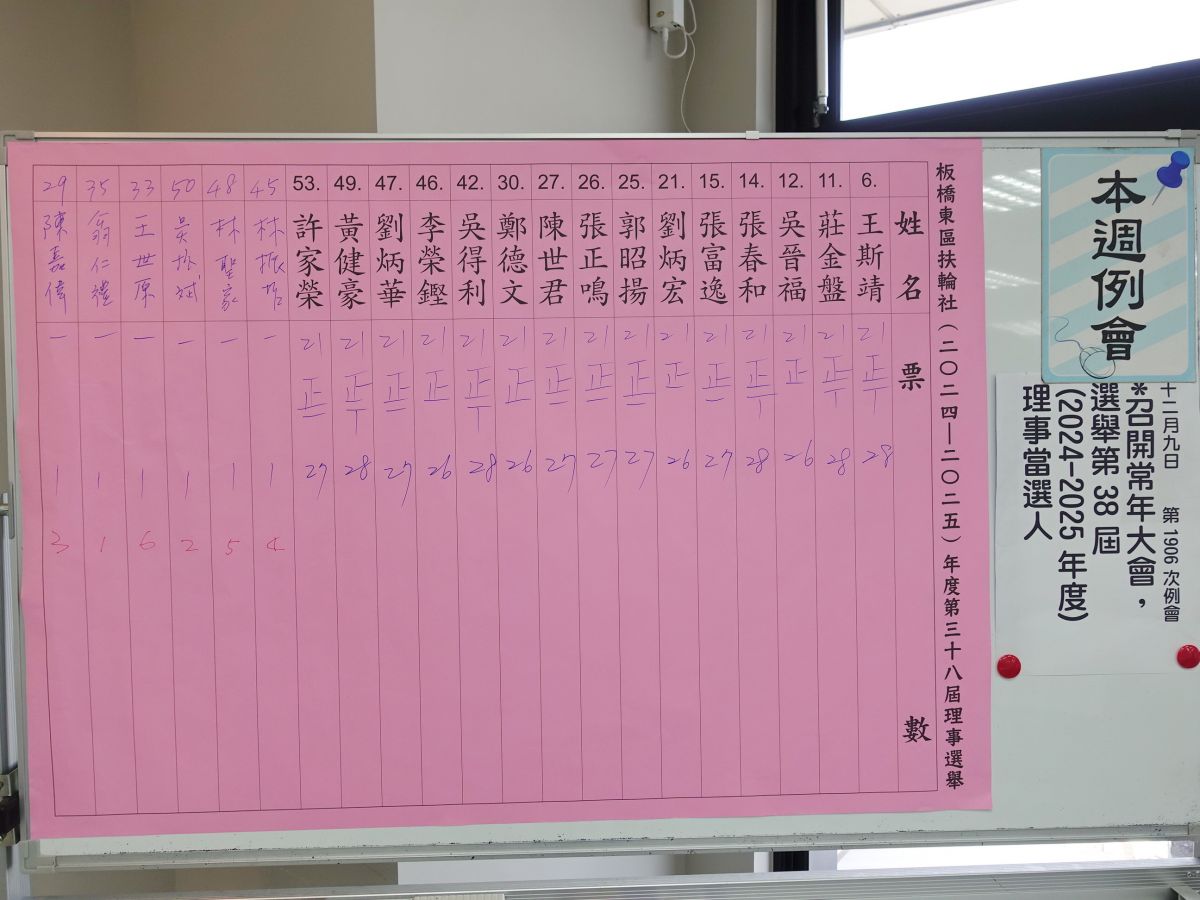 本週例會
十二月九日 第 1906 次例會
*召開常年大會，
選舉第 38 屆
(2024-2025 年度)
理事當選人
板橋東區扶輪社(二〇二四—二〇二五)年度第三十八屆理事選舉
姓名 票數
6. 王斯靖 21 正丅 28
11. 莊金盤 21 正丅 28
12. 吳晉福 21 正 26
14. 張春和 21 正丅 28
15. 張富逸 21 正一 27
21. 劉炳宏 21 正 26
25. 郭昭揚 21 正一 27
26. 張正鳴 21 正一 27
27. 陳世君 21 正一 27
30. 鄭德文 21 正 26
42. 吳得利 21 正丅 28
46. 李榮鏗 21 正 26
47. 劉炳華 21 正一 27
49. 黃健豪 21 正丅 28
53. 許家榮 21 正一 27
45 林振 一 1 4
48 林聖 一 1 5
50 吳振斌 一 1 2
33 王世原 一 1 6
35 翁仁禮 一 1 1
29 陳嘉偉 一 1 3